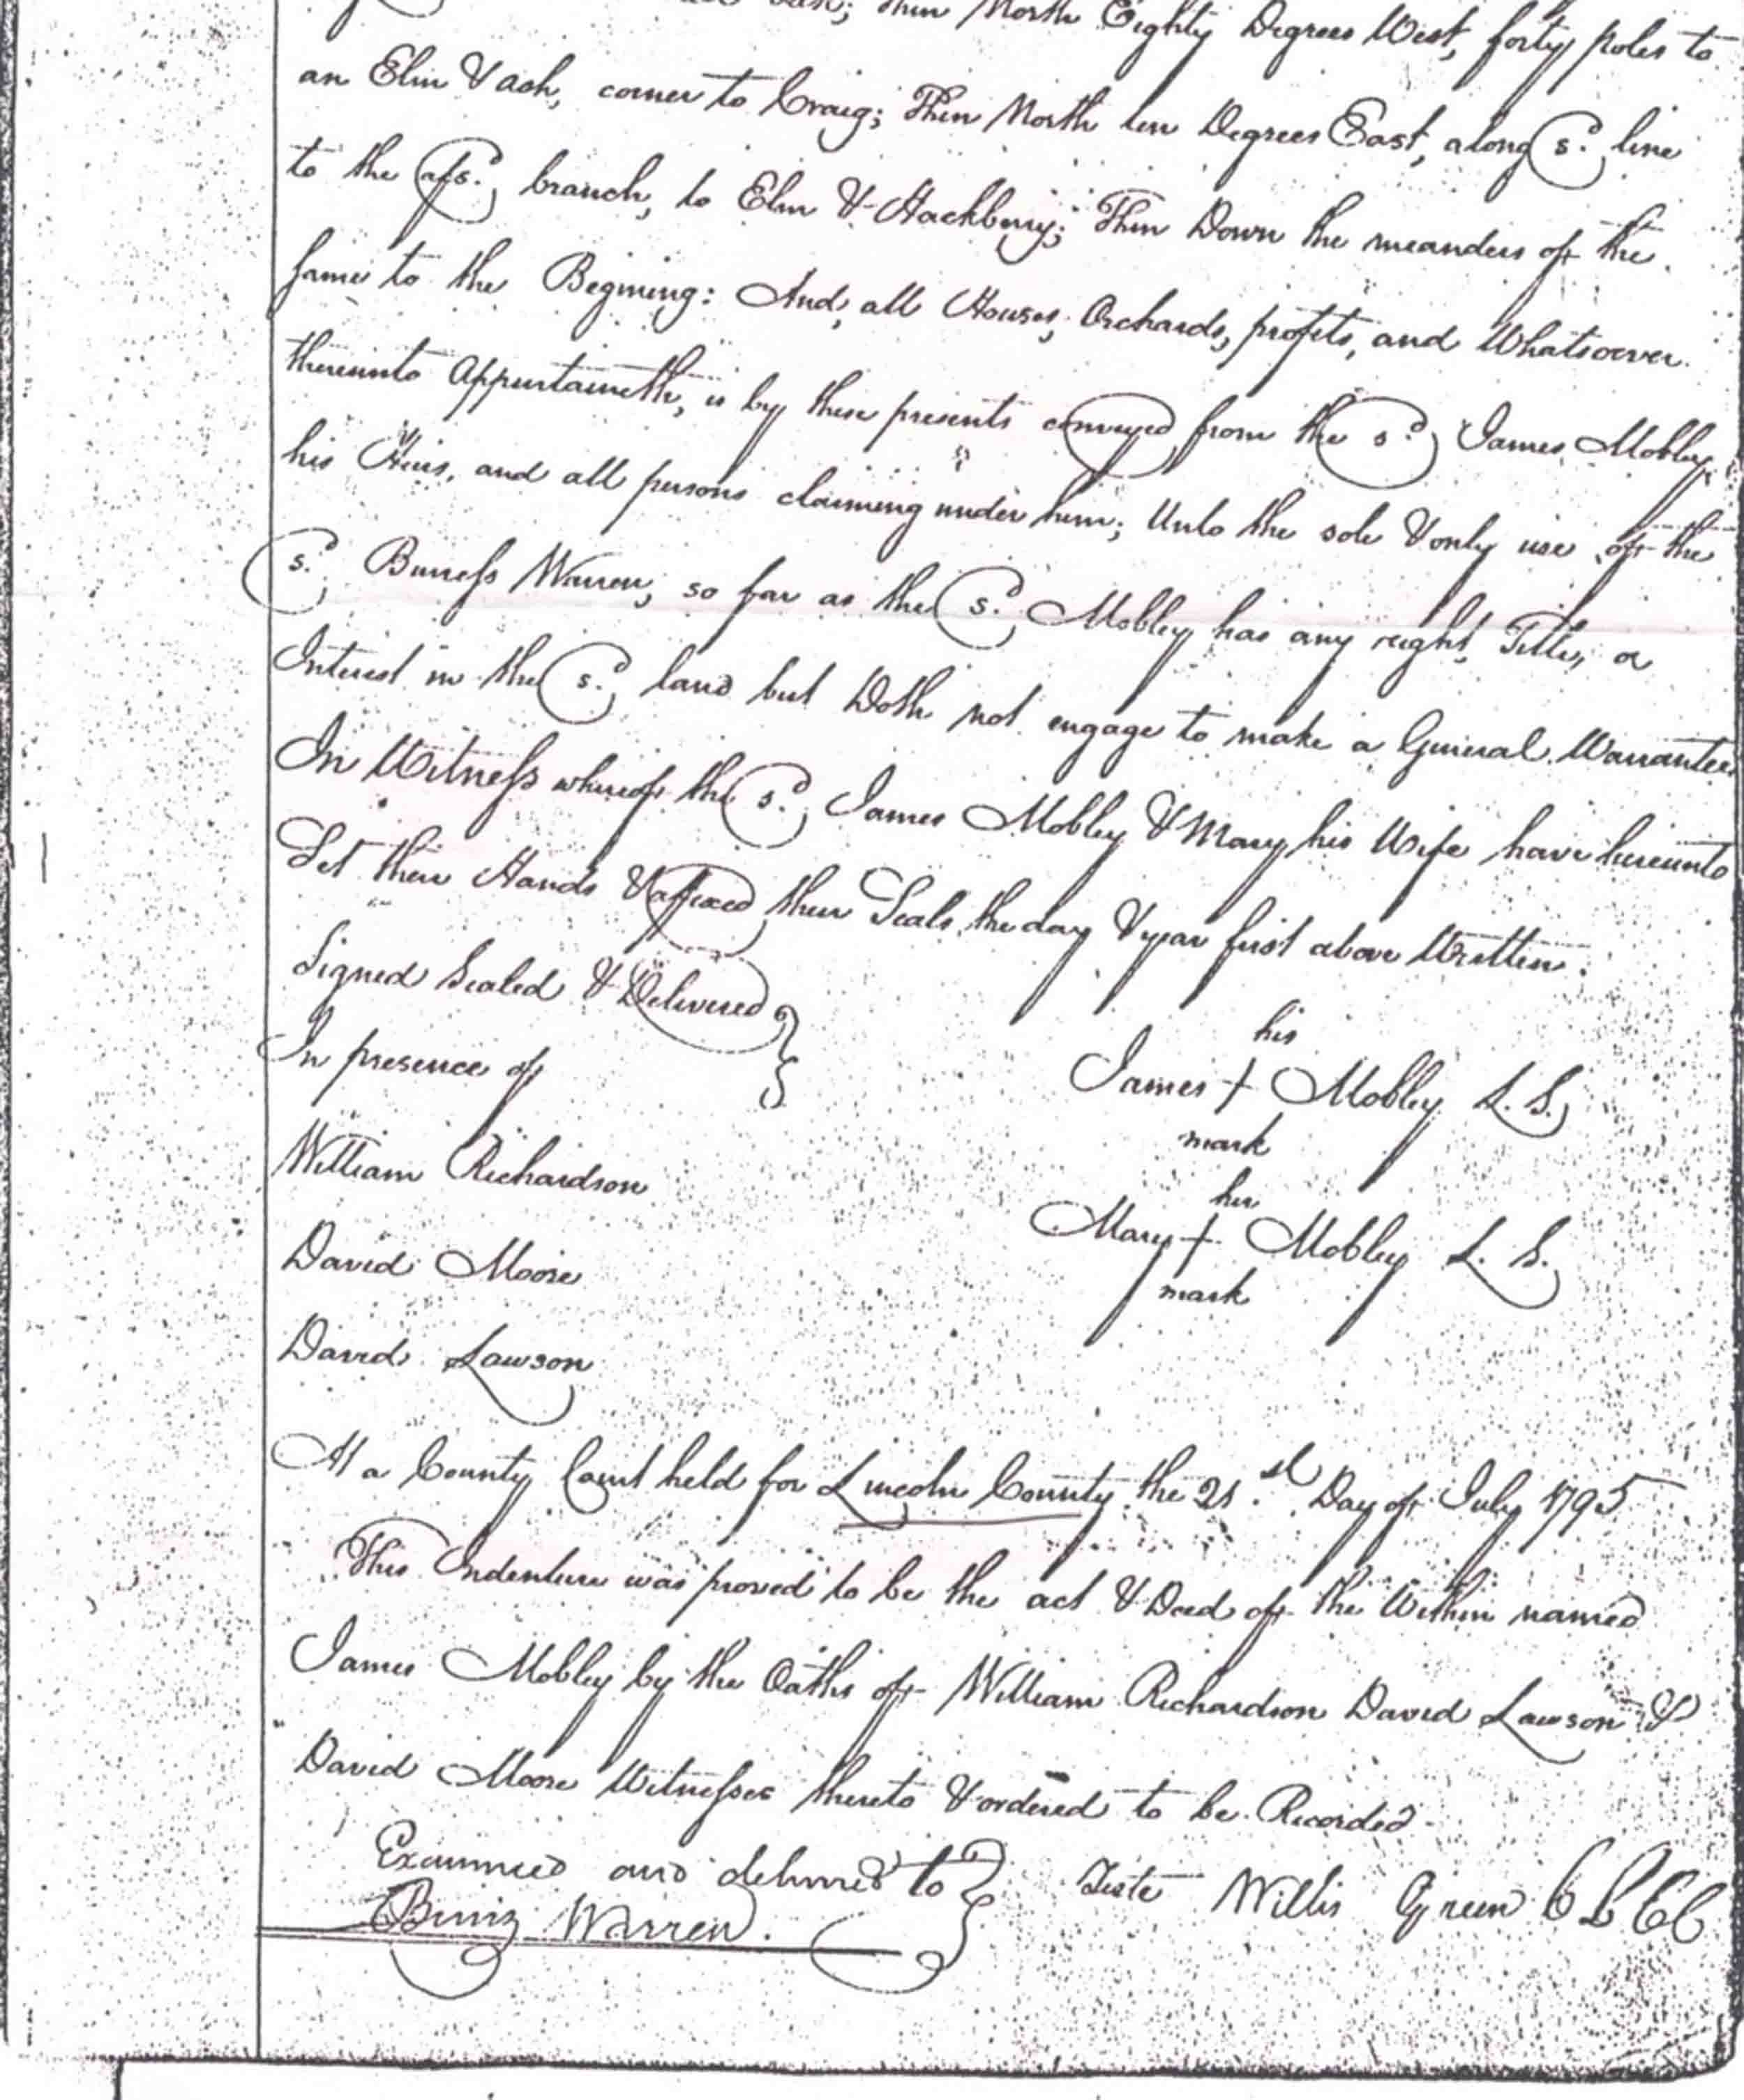 Oak; Then North Eighty Degrees West, forty poles to
an Elm & ash, corner to Craig; Then North ten Degrees East, along sd. line
to the afsd. branch, to Elm & Hackberry; Then Down the meanders of the
same to the Begining: And, all Houses, Orchards, profits, and Whatsoever
thereunto Appertaineth, is by these presents conveyed from the sd. James Mobley
his Heirs, and all persons claiming under him; Unto the sole & only use of the
sd. Burress Warren, so far as the sd. Mobley has any right, Title, or
Interest in the sd. land but Doth not engage to make a General Warrantee
In Witness whereof the sd. James Mobley & Mary his Wife have hereunto
Set their Hands & affixed their Seals, the day & year first above Written.
Signed Sealed & Delivered
In presence of
his
James + Mobley L. S.
mark
William Richardson
her
Mary + Mobley L. S.
mark
David Moore
David Lawson
At a County Court held for Lincoln County the 21.st Day of July 1795
This Indenture was proved to be the act & Deed of the Within named
James Mobley by the Oaths of William Richardson David Lawson &
David Moore Witnesses thereto & ordered to be Recorded
Examined and delivered to
Teste Willis Green C L C C
Burriz Warren.